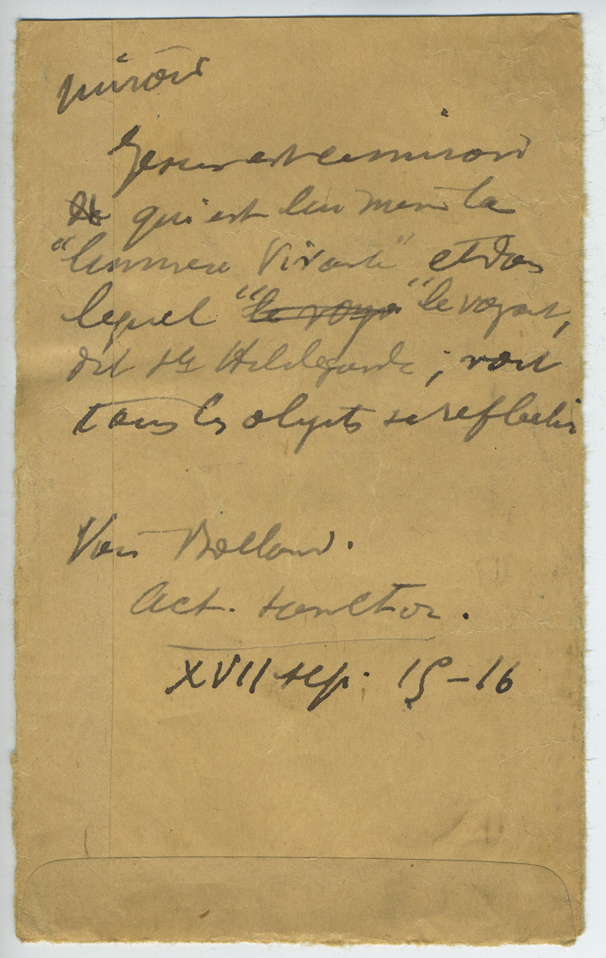 miroir
Jesus est ce miroir
qui est lui meme la
"lumiere vivante" et dans
lequel "le voya "le voyant,
dit Ste Hildegarde; voit
tous les objets se reflechir
Voir Bolland.
Act. sanctor.
XVII sep. 15-16